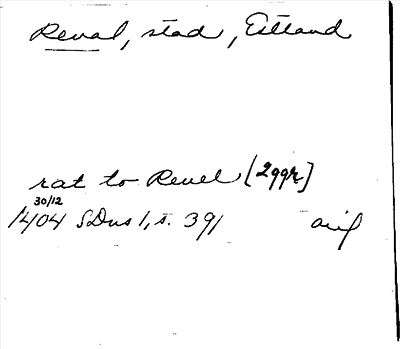 Reval, stad, Estland
rat to Reuel [2ggr]
30/12
1404 SDns 1, s. 391 avif